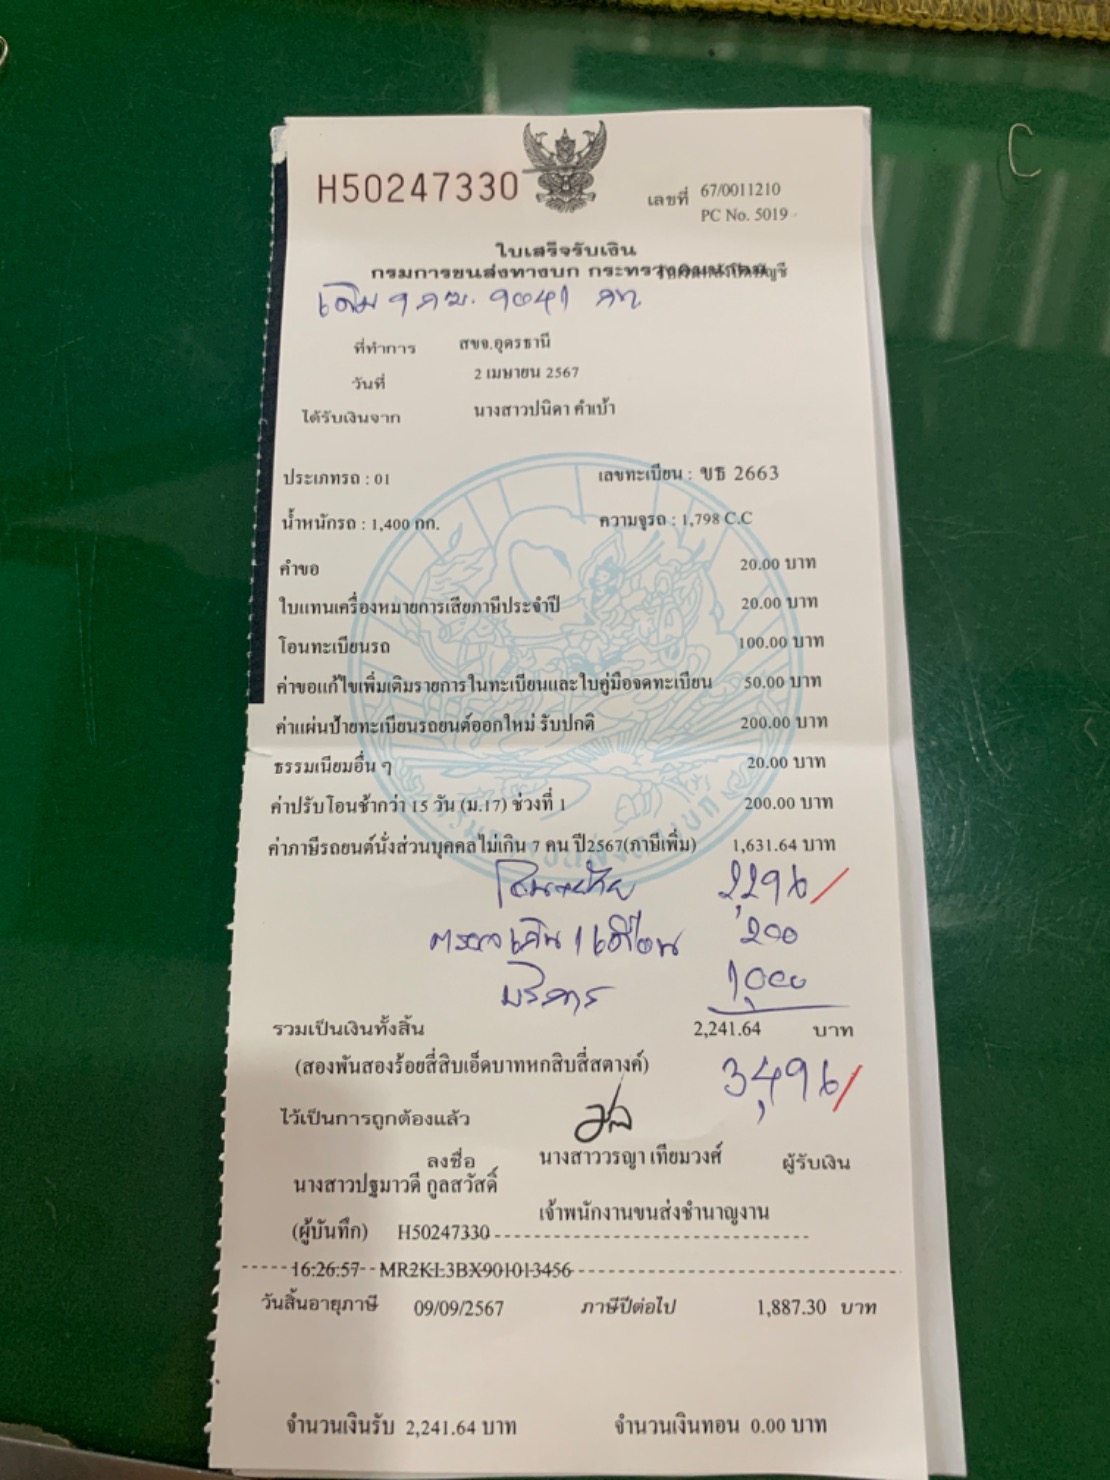 H50247330
เลขที่ 67/0011210
PC No. 5019
ใบเสร็จรับเงิน
กรมการขนส่งทางบก กระทรวงคมนาคม
เดิม 1 กฆ. 9041 กท
ที่ทำการ สขจ.อุดรธานี
วันที่ 2 เมษายน 2567
ได้รับเงินจาก นางสาวปนิดา คำเบ้า
ประเภทรถ : 01 เลขทะเบียน : ขธ 2663
น้ำหนักรถ : 1,400 กก. ความจุรถ : 1,798 C.C
คำขอ 20.00 บาท
ใบแทนเครื่องหมายการเสียภาษีประจำปี 20.00 บาท
โอนทะเบียนรถ 100.00 บาท
ค่าขอแก้ไขเพิ่มเติมรายการในทะเบียนและใบคู่มือจดทะเบียน 50.00 บาท
ค่าแผ่นป้ายทะเบียนรถยนต์ออกใหม่ รับปกติ 200.00 บาท
ธรรมเนียมอื่น ๆ 20.00 บาท
ค่าปรับโอนช้ากว่า 15 วัน (ม.17) ช่วงที่ 1 200.00 บาท
ค่าภาษีรถยนต์นั่งส่วนบุคคลไม่เกิน 7 คน ปี2567(ภาษีเพิ่ม) 1,631.64 บาท
2,296/
200
บริการ 1,000
รวมเป็นเงินทั้งสิ้น 2,241.64 บาท
(สองพันสองร้อยสี่สิบเอ็ดบาทหกสิบสี่สตางค์)
3,496/
ไว้เป็นการถูกต้องแล้ว
ลงชื่อ นางสาววรญา เทียมวงศ์ ผู้รับเงิน
นางสาวปฐมาวดี กูลสวัสดิ์
เจ้าพนักงานขนส่งชำนาญงาน
(ผู้บันทึก) H50247330
16:26:57 MR2KL3BX901013456
วันสิ้นอายุภาษี 09/09/2567 ภาษีปีต่อไป 1,887.30 บาท
จำนวนเงินรับ 2,241.64 บาท จำนวนเงินทอน 0.00 บาท